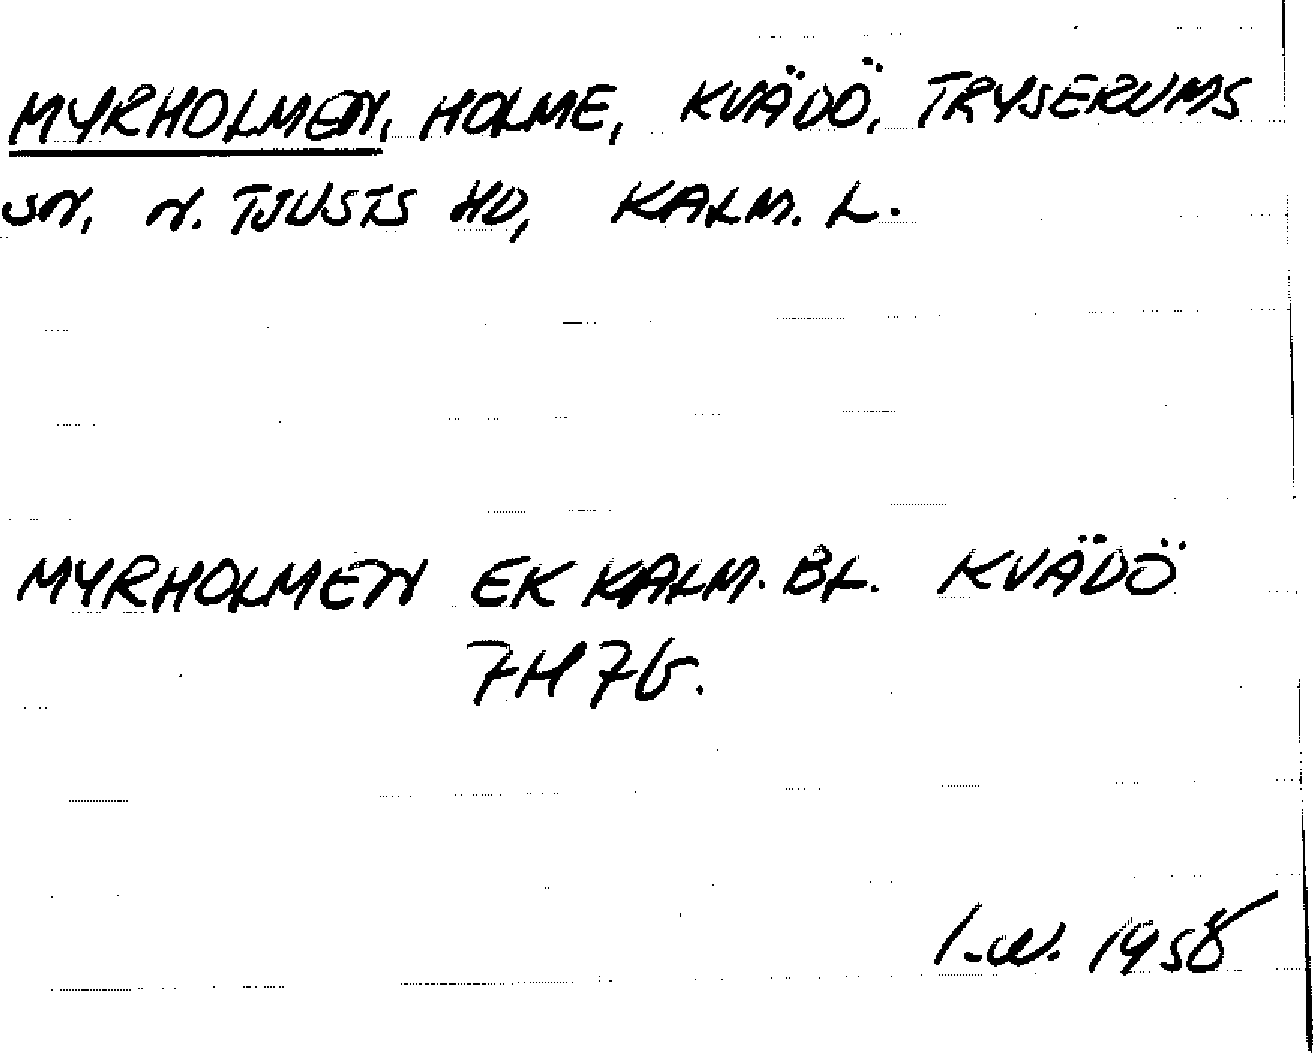 MYRHOLMEN, HOLME, KVÄDÖ, TRYSERUMS
SN, N. TJUSTS HD, KALM. L.
MYRHOLMEN EK KALM. BL. KVÄDÖ
7H 7G.
1958